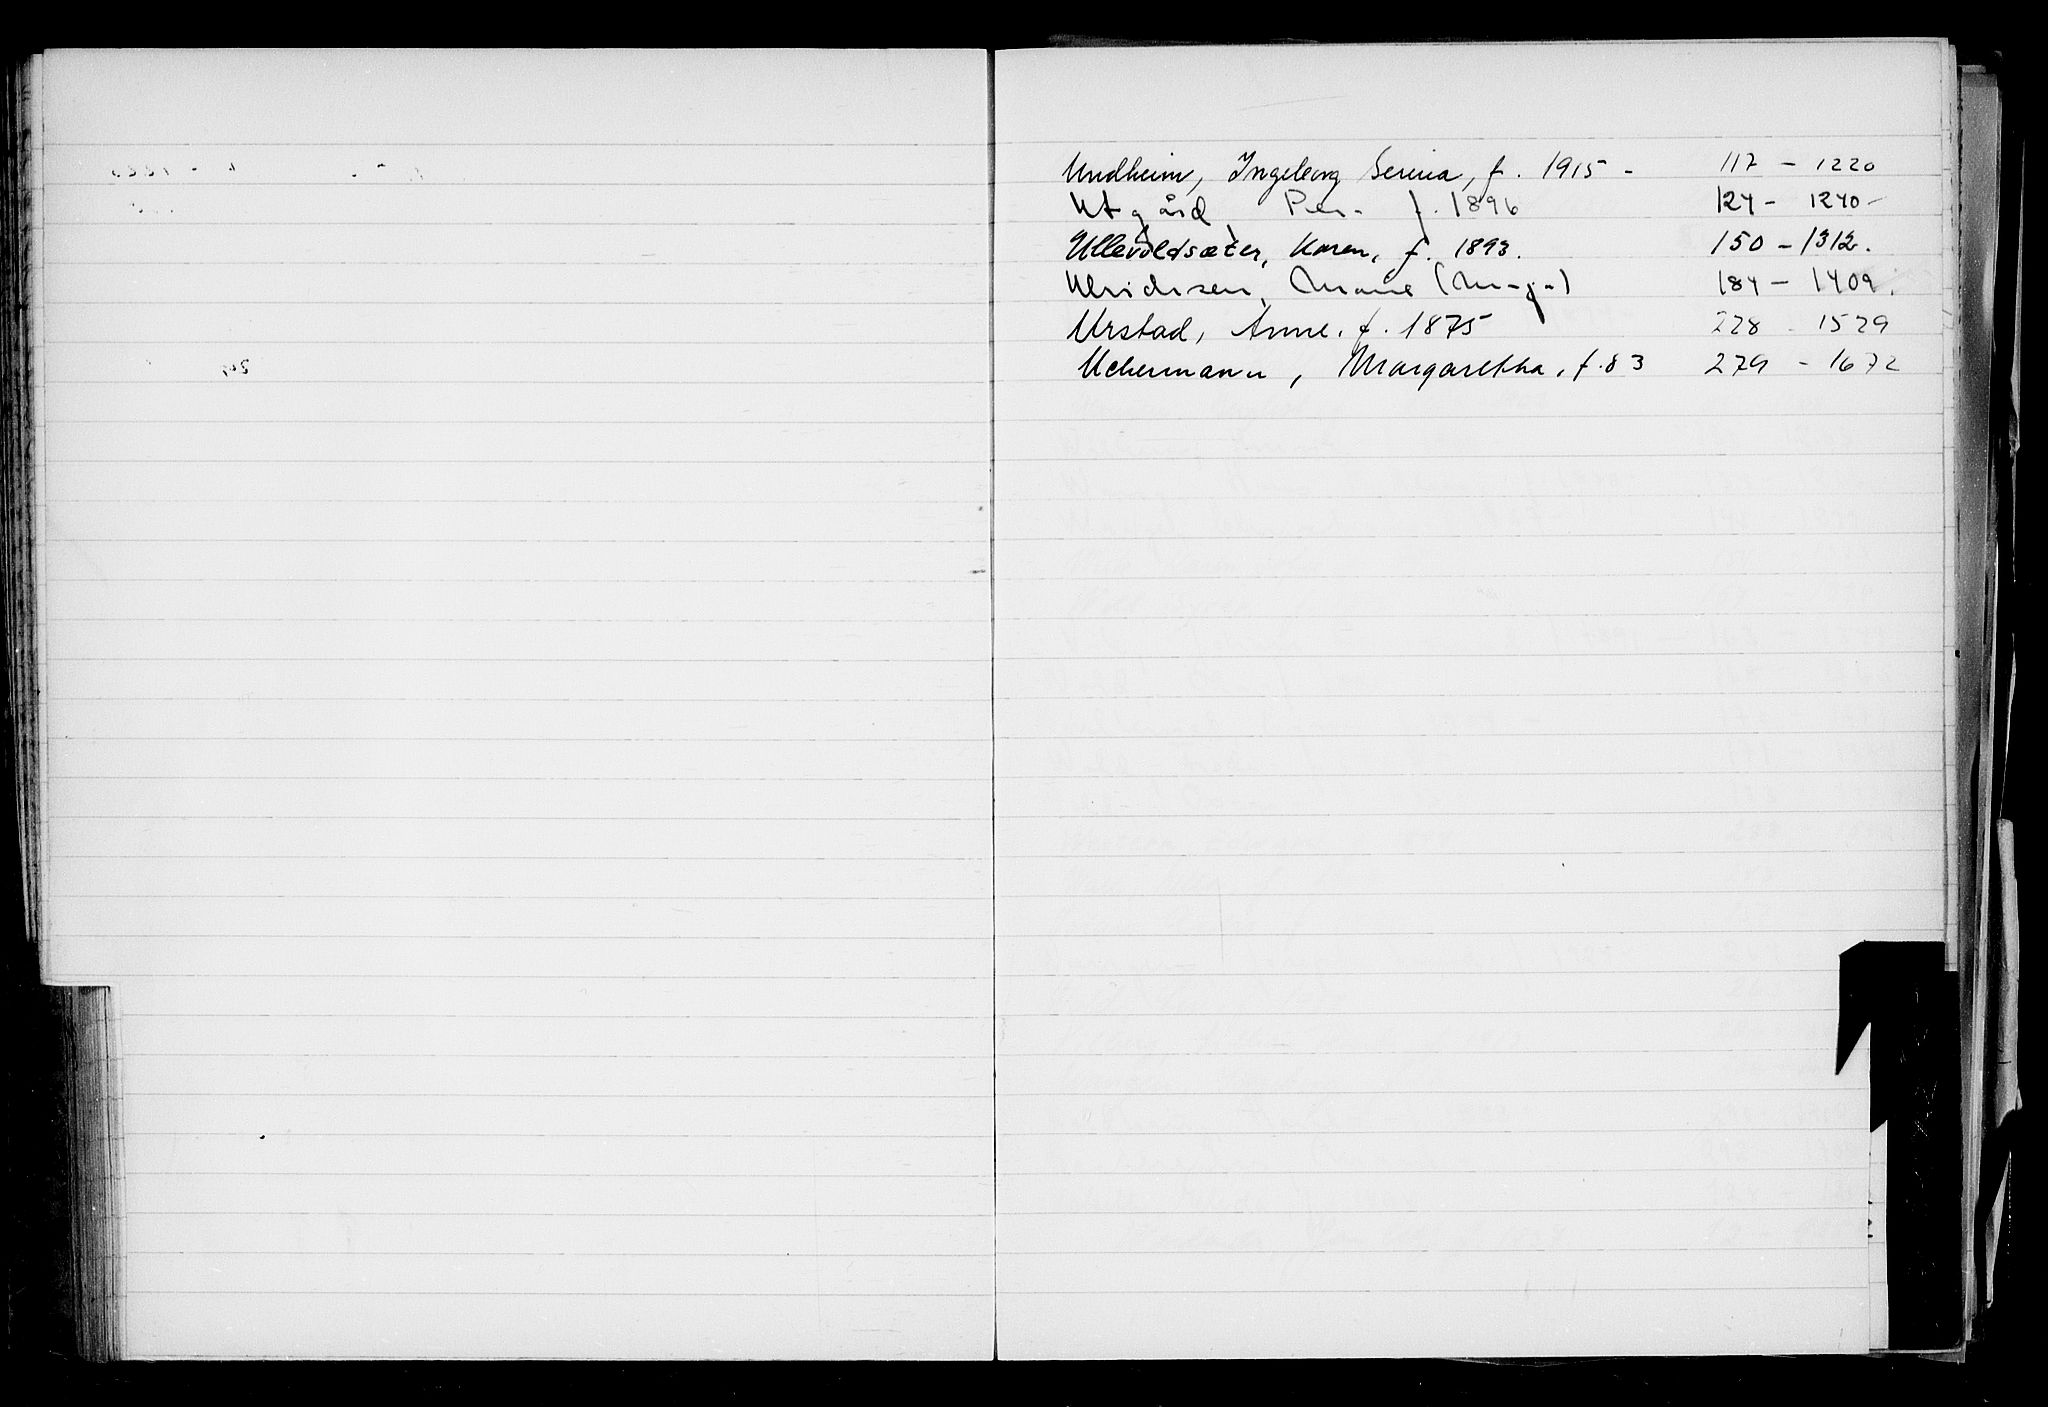 Undheim, Ingeborg Serina, f. 1915 - 117 - 1220
Utgård, Per. f. 1896 124 - 1240 -
Ullevoldsæter, Karen, f. 1893. 150 - 1312.
Ulrichsen, Marie (Maja) 184 - 1409.
Urstad, Anne. f. 1875 228 - 1529
Uchermann, Margaretha, f. 83 279 - 1672